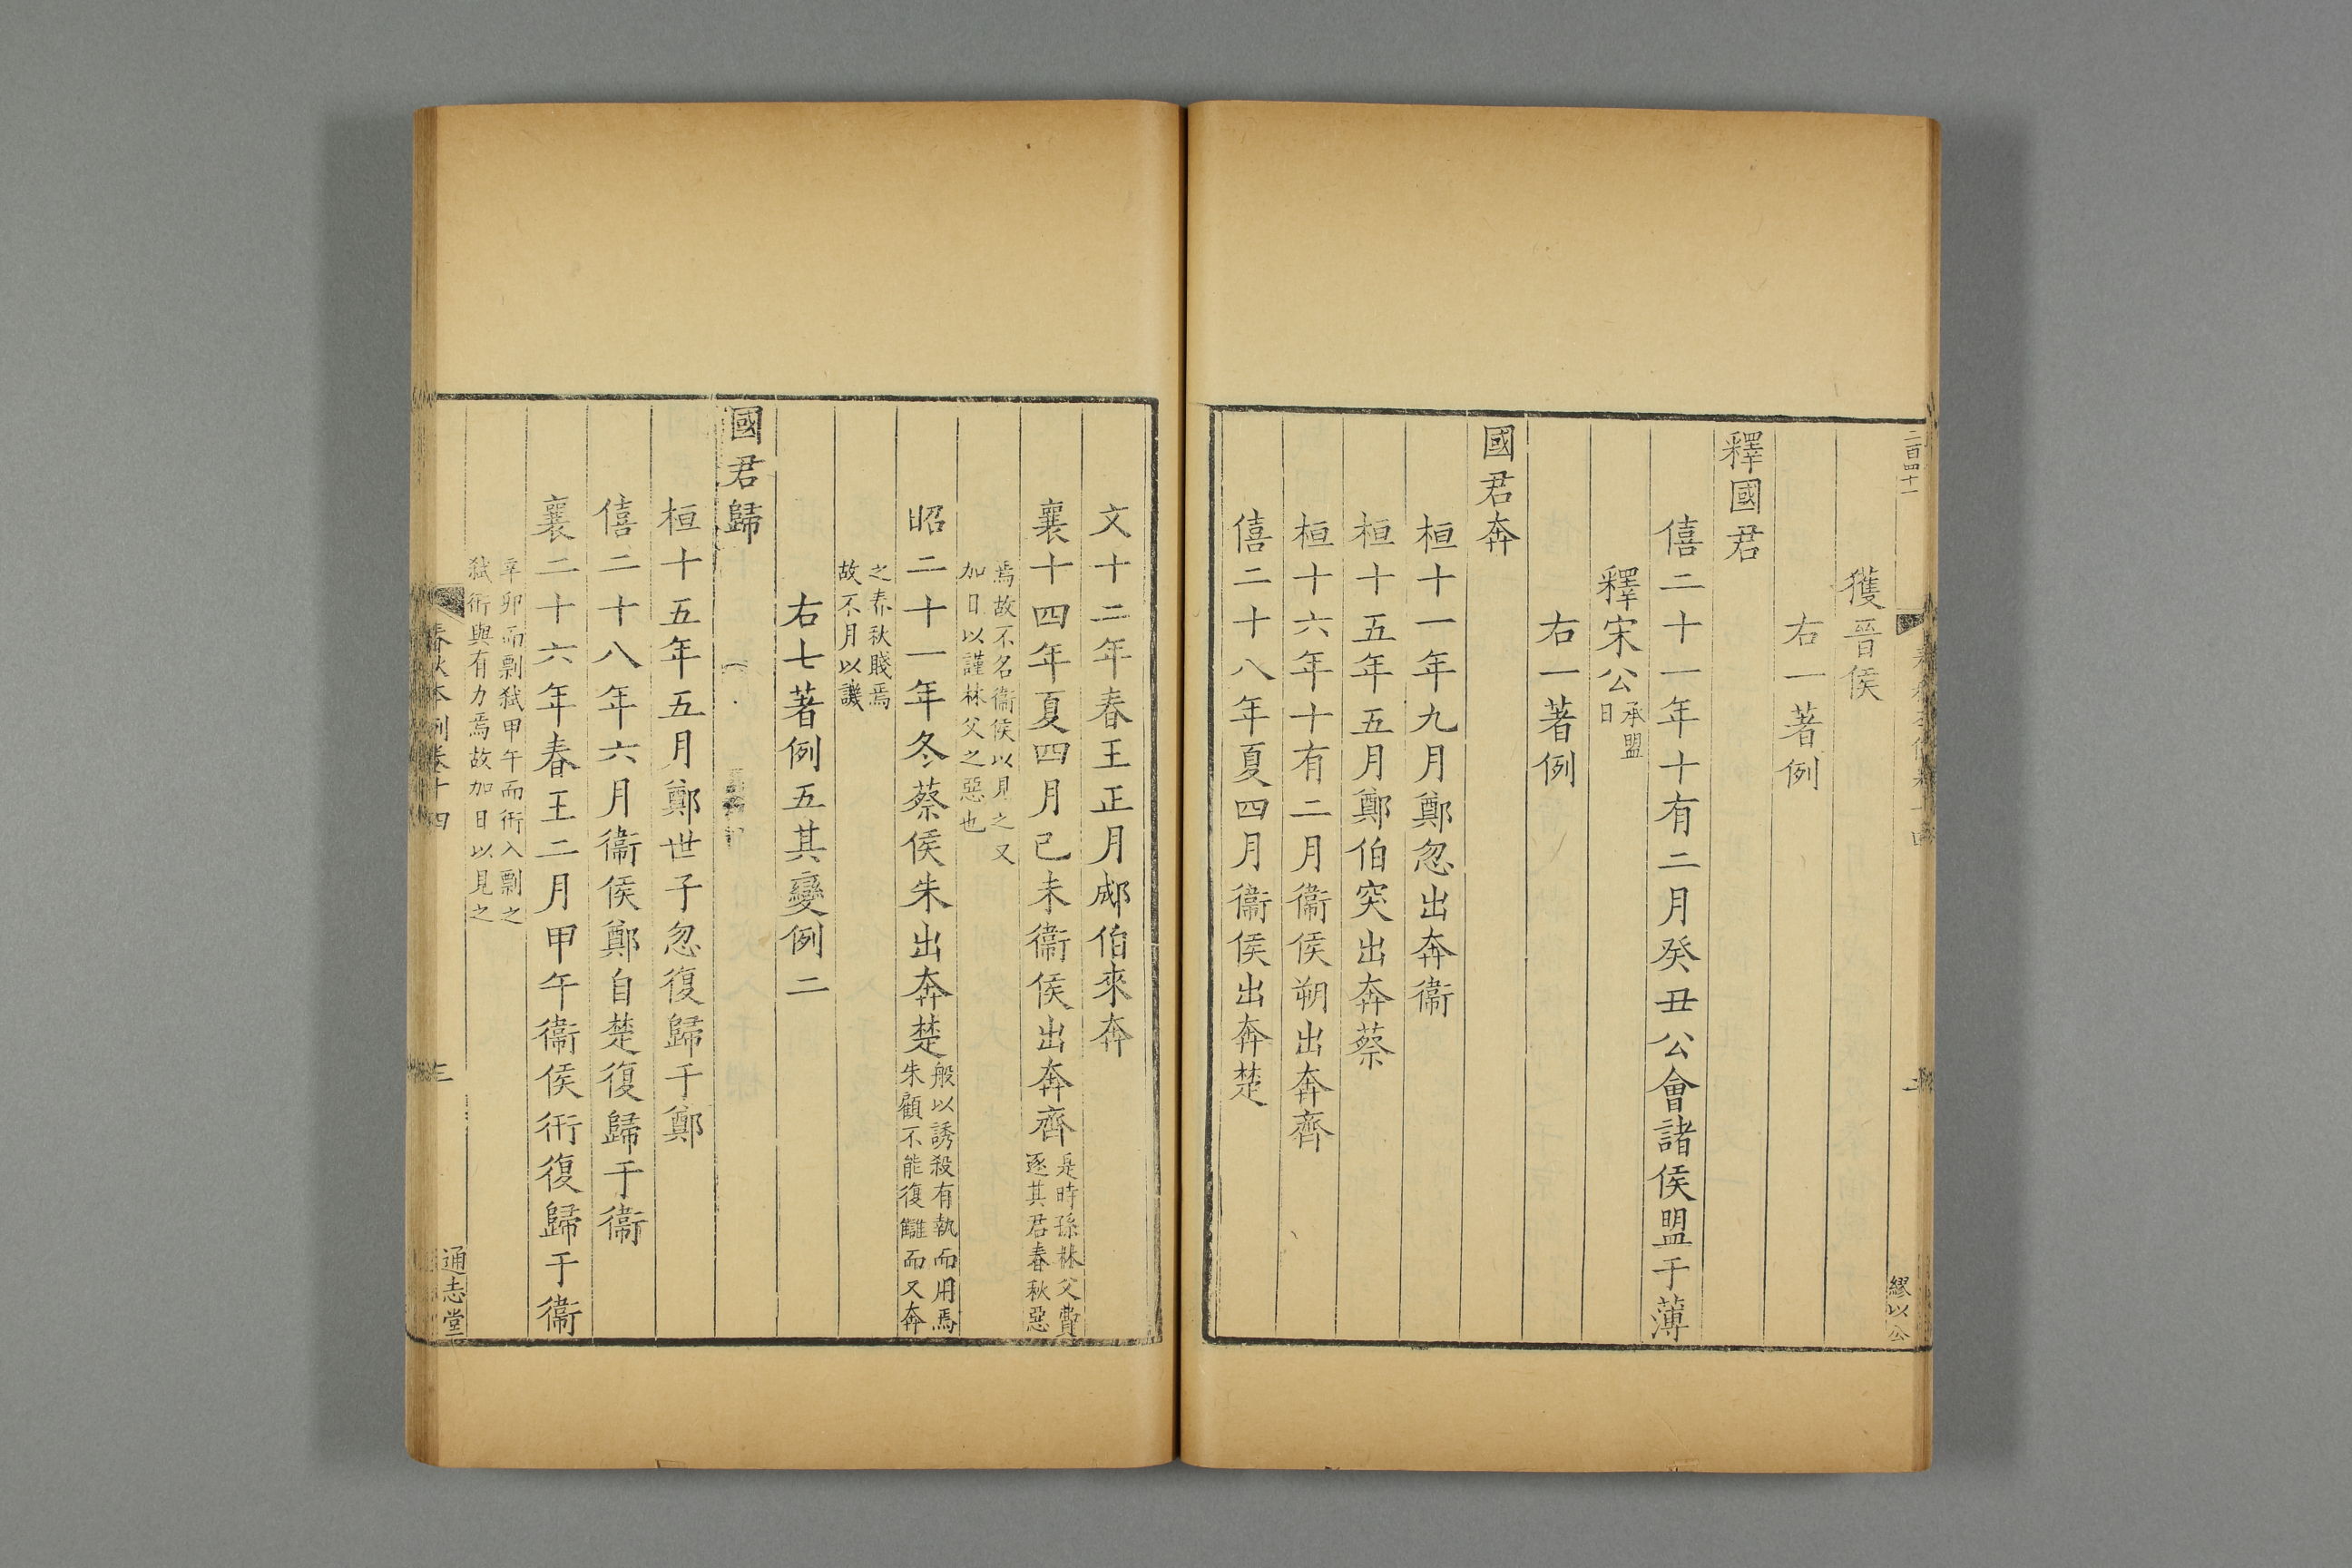 二百四十一
繆以公
獲晉侯
右一著例
釋國君
僖二十一年十有二月癸丑公會諸侯盟于薄
釋宋公承盟
日
右一著例
國君奔
桓十一年九月鄭忽出奔衞
桓十五年五月鄭伯突出奔蔡
桓十六年十有二月衞侯朔出奔齊
僖二十八年夏四月衞侯出奔楚
文十二年春王正月郕伯來奔
襄十四年夏四月己未衞侯出奔齊是時孫林父甯
逐其君春秋惡
焉故不名衞侯以見之又
加日以謹林父之惡也
昭二十一年冬蔡侯朱出奔楚般以誘殺有執而用焉
朱顧不能復讎而又奔
之春秋賤焉
故不月以譏
右七著例五其變例二
國君歸
桓十五年五月鄭世子忽復歸于鄭
僖二十八年六月衞侯鄭自楚復歸于衞
襄二十六年春王二月甲午衞侯衎復歸于衞
辛卯而剽弑甲午而衎入剽之
弑衎與有力焉故加日以見之
春秋本例卷十四
三
通志堂